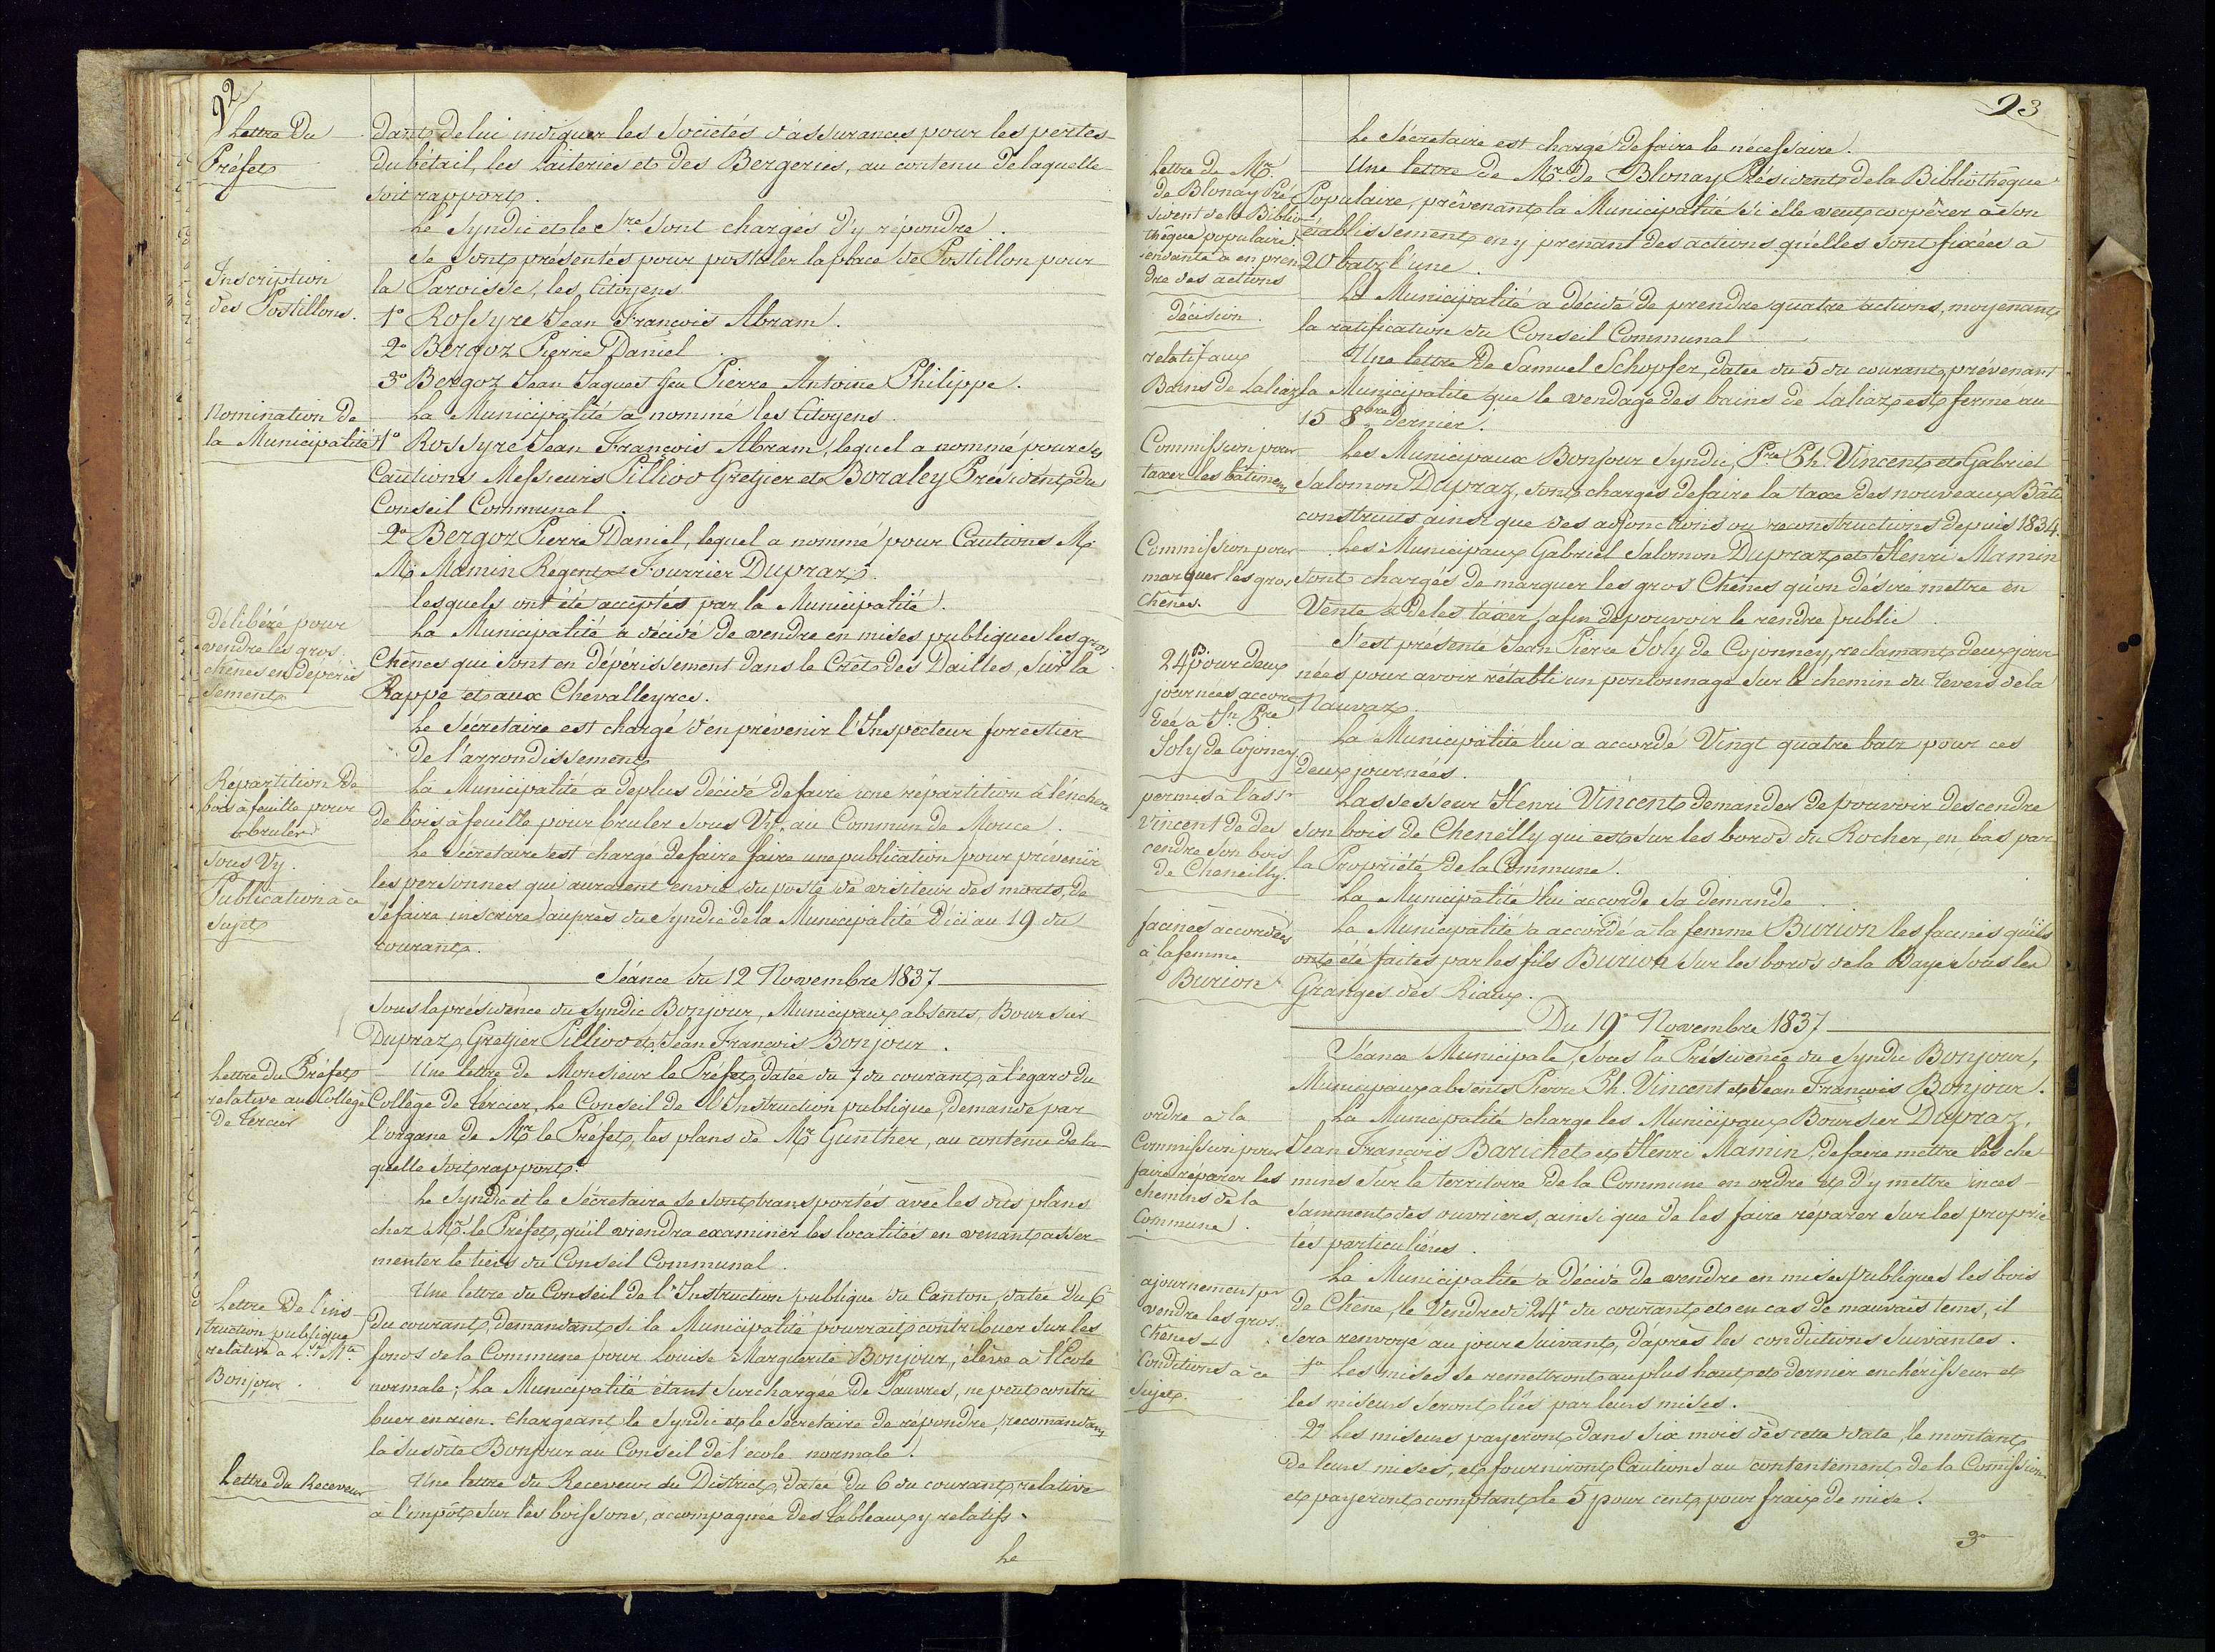 92
Lettre Du
Préfet
dant de lui indiquer les sociétés d'assurances pour les pertes
Du bétail, les Laiteries et des Bergeries, au contenu de laquelle
soit rapport.
Le Syndic et le Sre. sont chargés d'y répondre.
Inscription
des Postillons.
Se sont présentés pour postuler la place de Postillon pour
la Paroisse, les Citoyens
1° Rossyre Jean François Abram.
2° Bergoz Pierre Daniel.
3° Bergoz Jean Jaques feu Pierre Antoine Philippe.
Nomination de
la Municipalité
La Municipalité a nommé les Citoyens
1° Rossyre Jean François Abram, lequel a nommé pour ses
Cautions Messieurs Pilliod Greffier et Boraley Président du
Conseil Communal.
2° Bergoz Pierre Daniel, lequel a nommé pour Cautions M.
M. Mamin Régent et Fourrier Dupraz.
lesquels ont été acceptés par la Municipalité.
Délibéré pour
vendre les gros
chênes en dépéris
sement
La Municipalité a décidé de vendre en mises publiques les gros
Chênes qui sont en dépérissement dans le Crêt des Dailles, sur la
Rappe et aux Chevalleyres.
Le Sécretaire est chargé d'en prévenir l'Inspecteur forestier
de l'arrondissement
Répartition de
bois à feuille pour
bruler
sous Vy.
La Municipalité a deplus décidé de faire une répartition à l'enchère
de bois à feuille pour bruler sous Vy, au Commun de Mouce.
Publication à ce
sujet
Le Sécretaire est chargé de faire faire une publication pour prévenir
les personnes qui auraient envie du poste de visiteur des morts, de
se faire inscrire auprès du Syndic de la Municipalité d'ici au 19 du
courant.
Séance du 12 Novembre 1837
Sous la présidence du Syndic Bonjour, Municipaux absents, Boursier
Dupraz, Greffier Pilliod et Jean François Bonjour.
Lettre du Préfet
relative au Collège
de Tercier
Une lettre de Monsieur le Préfet, datée du 7 du courant, à l'égard du
Collège de Tercier, Le Conseil de l'Instruction publique, demande par
l'organe de Mr. le Préfet, les plans de Mr. Gunther, au contenu de la-
quelle soit rapport.
Le Syndic et le Sécretaire se sont transportés avec les dits plans
chez Mr. le Préfet, qu'il viendra examiner les localités en venant asser-
menter le tiers du Conseil Communal.
Lettre De l'ins
truction publique
relative à L.se M.te
Bonjour.
Une lettre du Conseil de l'Instruction publique du Canton, datée du 6
du courant, demandant si la Municipalité pourrait contribuer sur les
fonds de la Commune pour Louise Marguerite Bonjour, élève à l'Ecole
normale; La Municipalité étant surchargée De Pauvres, ne peut contri
buer en rien. Chargeant le Syndic et le Sécretaire de répondre, recomandant
la susdite Bonjour au Conseil de l'école normale.
Lettre du Receveur
Une lettre du Receveur du District, datée du 6 du courant, relative
à l'impôt sur les boissons, accompagnée des tableaux y relatifs.
Le
93
Le Sécretaire est chargé de faire le nécessaire.
Lettre de Mr.
de Blonay Pré
sident de la Biblio
thêque populaire.
tendante à en pren
dre des actions
Une lettre de Mr. de Blonay Président de la Bibliothêque
Populaire, prévenant la Municipalité si elle veut coopêrer à son
établissement en y prenant des actions qu'elles sont fixées à
20 batz l'une.
décision.
La Municipalité a décidé de prendre quatre actions, moyenant
la ratification du Conseil Communal
relatif aux
Bains de Laliaz
Une lettre de Samuel Schopfer, datée du 5 du courant, prévenant
la Municipalité que le vendage des bains de Laliaz est fermé au
15 8bre. dernier.
Commission pour
taxer les bâtimens
Les Municipaux Bonjour Syndic, Pre. Ph. Vincent et Gabriel
Salomon Dupraz, sont chargés de faire la taxe des nouveaux Bâts
construits ainsi que des adjonctions ou reconstructions depuis 1834.
Commission pour
marquer les gros
Chênes.
Les Municipaux Gabriel Salomon Dupraz et Henri Mamin
sont chargés de marquer les gros Chênes qu'on désire mettre en
Vente & de les taxer, afin de pouvoir le rendre public.
24 pour deux
journées accor
dée à Jn. Pre.
Joly de Cojonney
S'est présenté Jean Pierre Joly de Cojonney, reclamant deux jour
nées pour avoir rétabli un pontonnage sur le chemin du revers de la
Nauvaz.
La Municipalité lui a accordé Vingt quatre batz pour ces
deux journées.
permis à l'assr.
Vincent de des
cendre son bois
de Cheneilly.
L'assesseur Henri Vincent demande de pouvoir descendre
son bois de Chenelly qui est sur les bords du Rocher, en bas par
la Propriété de la Commune.
La Municipalité lui accorde sa demande
facines accordées
à la femme
Burion
La Municipalité a accordé à la femme Burion les facines qu'ils
ont été faites par les fils Burion sur les bords de la Baye sous les
Granges des Riaux.
Du 19e Novembre 1837
Séance Municipale, sous la Présidence du Syndic Bonjour,
Municipaux absents Pierre Ph. Vincent et Jean François Bonjour.
ordre à la
Commission pour
faire réparer les
chemins de la
Commune.
La Municipalité charge les Municipaux Boursier Dupraz,
Jean François Barichet et Henri Mamin, de faire mettre les che
mins sur le territoire de la Commune en ordre et d'y mettre inces-
samment des ouvriers, ainsi que de les faire réparer sur les proprié
tés particulières.
ajournement pr
vendre les gros
Chênes
La Municipalité a décidé de vendre en mises publiques les bois
de Chêne, le Vendredi 24e du courant, et en cas de mauvais tems, il
sera renvoyé au jour suivant, d'après les conditions suivantes.
Conditions à ce
sujet.
1° Les mises se remettront au plus haut et dernier enchérisseur et
les miseurs seront liés par leurs mises.
2° Les miseurs payeront dans six mois dès cette date, le montant
de leurs mises, et fourniront Cautions au contentement de la Comission
et payeront comptant le 5 pour cent, pour fraix de mise.
3°